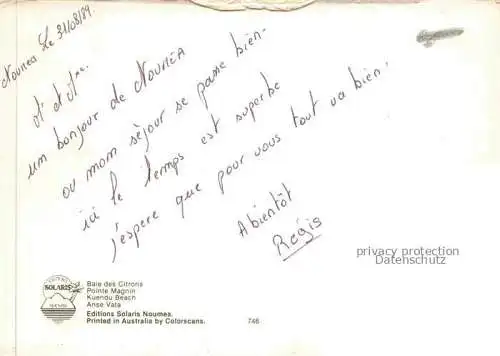 Nouméa Le 31/08/89.
Mr et Mme
un bonjour de Nouméa
ou mom séjour se passe bien.
ici le temps est superbe
j'espere que pour vous tout va bien.
A bientôt
Régis
privacy protection
Datenschutz
SOLARIS
Baie des Citrons
Pointe Magnin
Kuendu Beach
Anse Vata
Editions Solaris Noumea.
Printed in Australia by Colorscans.
746